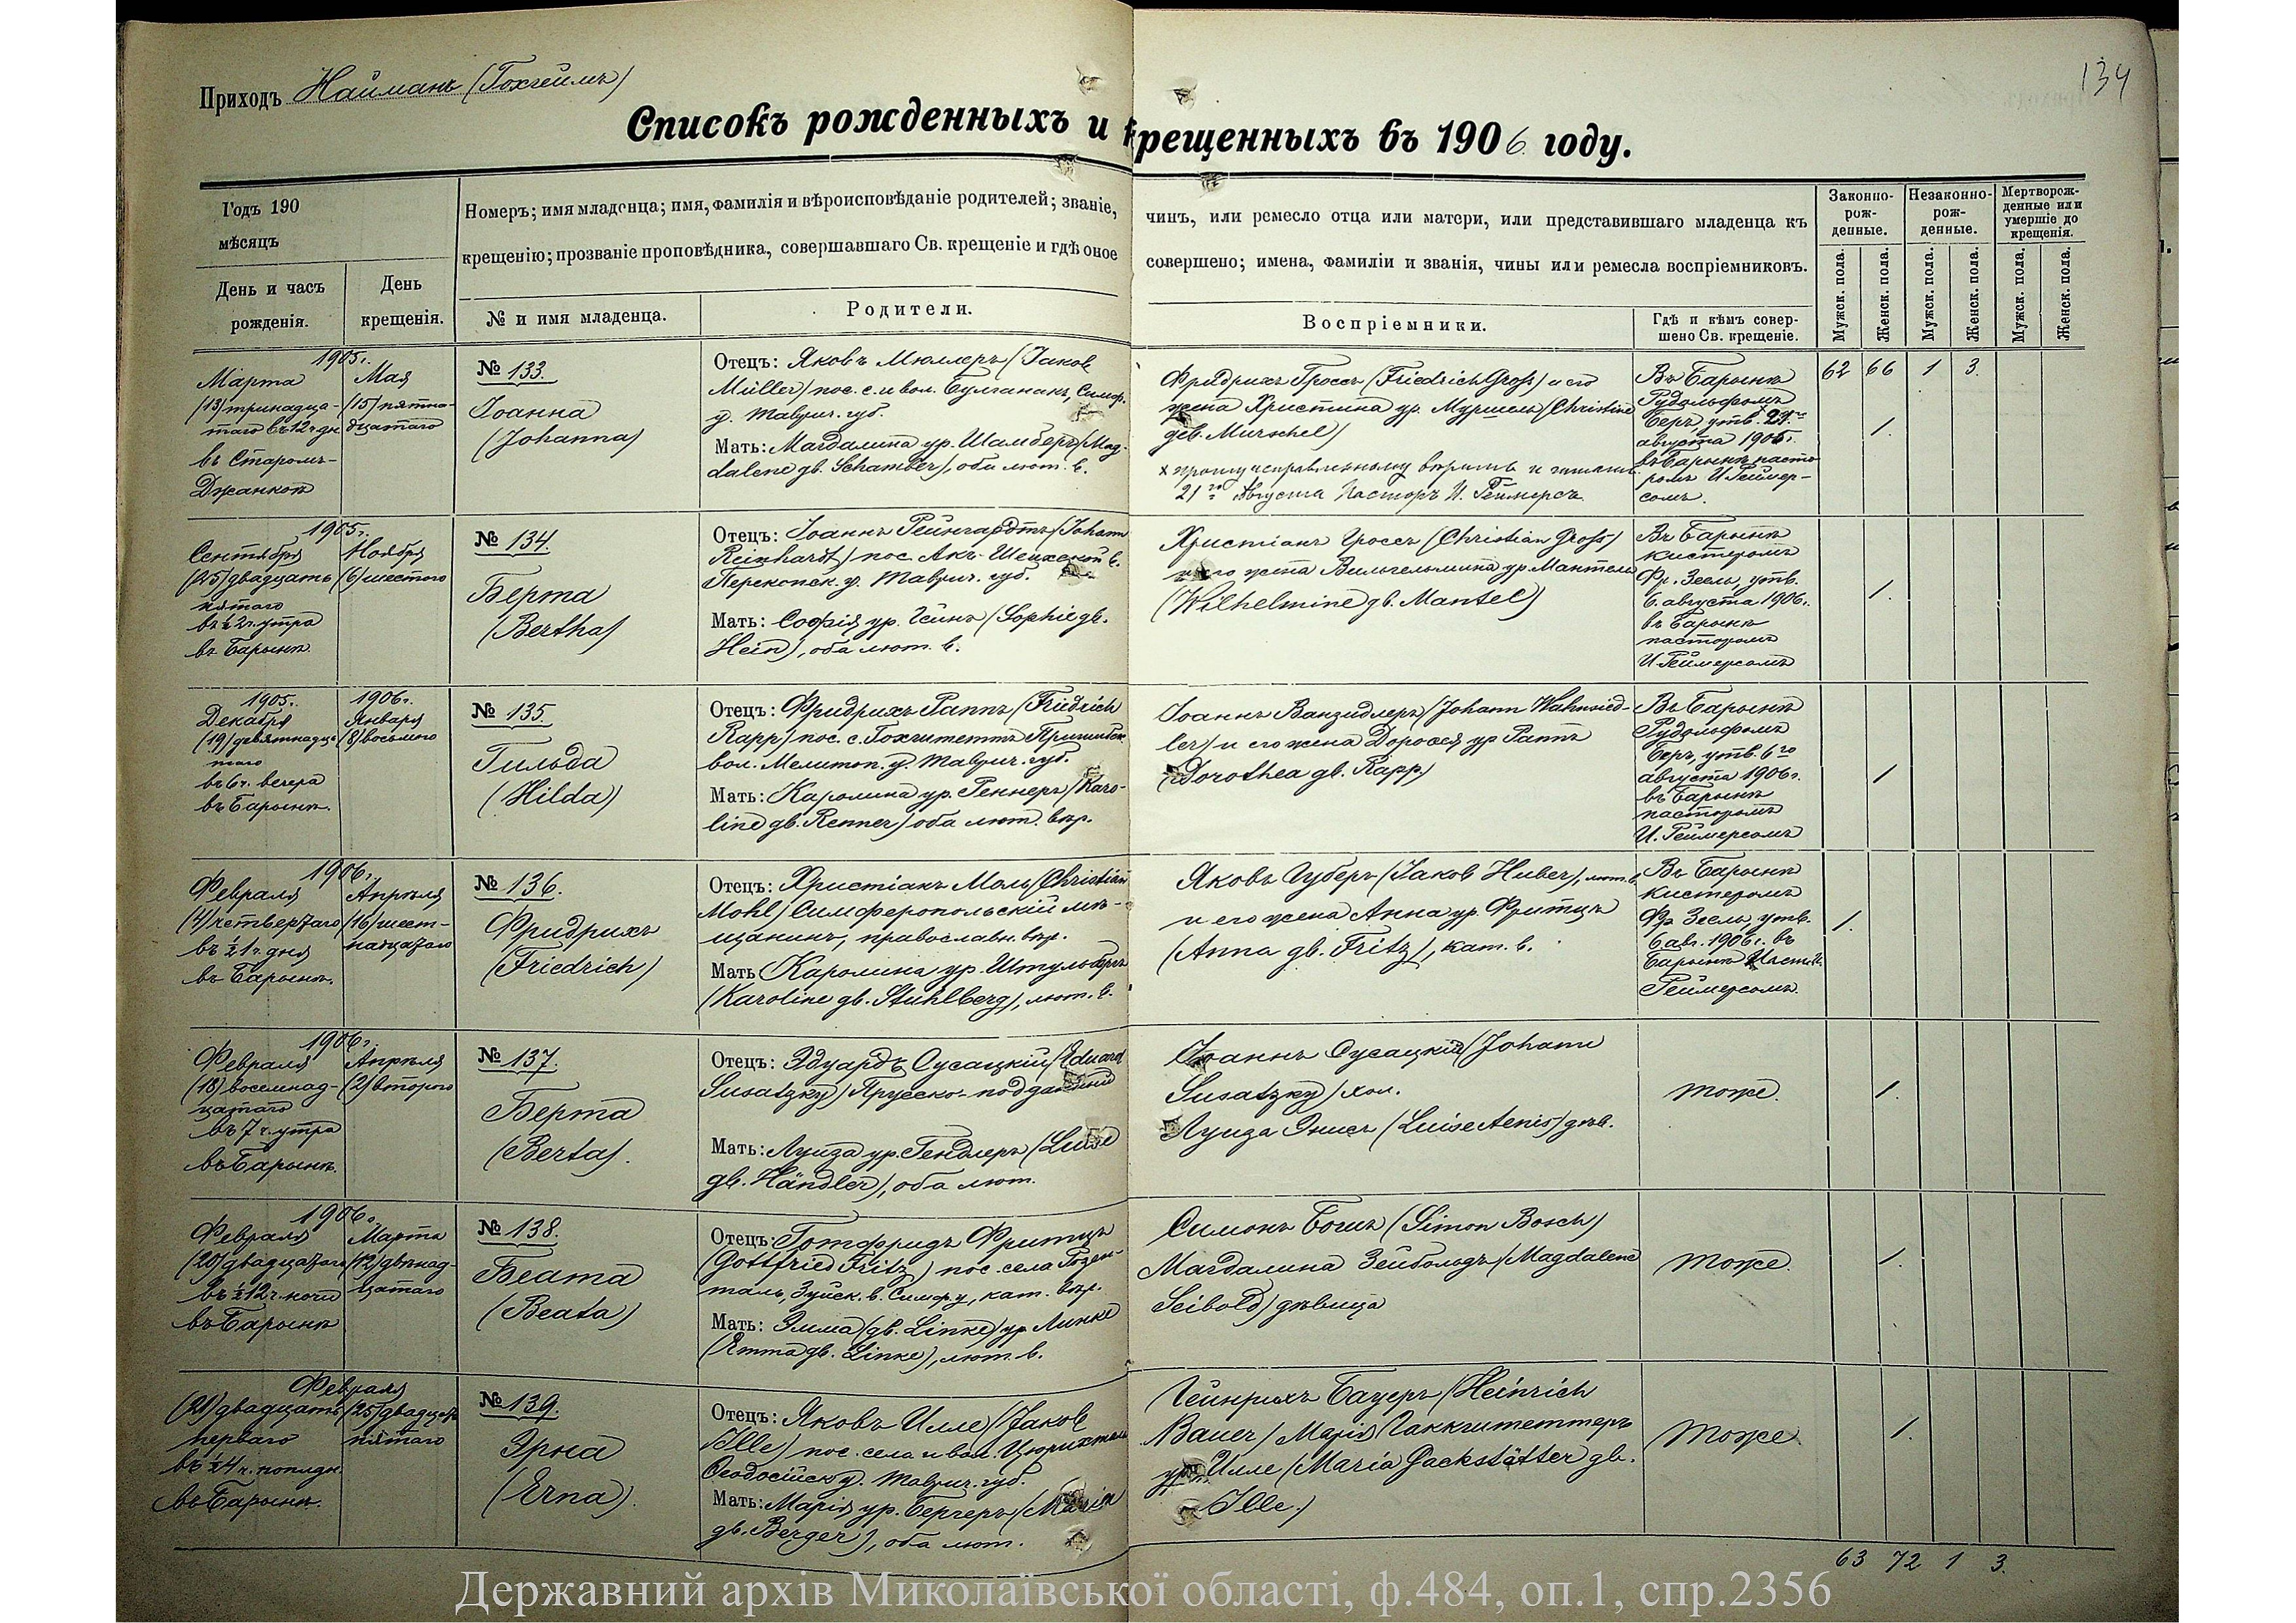 134
Приходъ Найманъ (Гохгеймъ)
Списокъ рожденныхъ и крещенныхъ въ 1906 году.
Годъ 190
мѣсяцъ
День и часъ
рожденія.
День
крещенія.
Номеръ; имя младенца; имя, фамилія и вѣроисповѣданіе родителей; званіе,
чинъ, или ремесло отца или матери, или представившаго младенца къ
крещенію; прозваніе проповѣдника, совершавшаго Св. крещеніе и гдѣ оное
совершено; имена, фамиліи и званія, чины или ремесла воспріемниковъ.
№ и имя младенца.
Родители.
Воспріемники.
Гдѣ и кѣмъ совер-
шено Св. крещеніе.
Законно-
рож-
денные.
Незаконно-
рож-
денные.
Мертворож-
денные или
умершіе до
крещенія.
Мужск. пола.
Женск. пола.
Мужск. пола.
Женск. пола.
Мужск. пола.
Женск. пола.
1905г.
Марта
(13) тринадца-
таго въ 12 ч. дн.
въ Старомъ-
Джанкоѣ
Мая
(15) пятна-
дцатаго
№ 133.
Іоанна
(Johanna)
Отецъ: Яковъ Мюллеръ (Jakob
Müller) пос. с. и вол. Булганакъ, Симф.
у. Таврич. губ.
Мать: Магдалина ур. Шамберъ (Mag-
dalene gb. Schamber), оба лют. в.
Фридрихъ Гроссъ (Friedrich Groß) и его
жена Христина ур. Муршель (Christine
geb. Murschel)
х прошу исправленному вѣрить и читать
21го Августа Пасторъ И. Геймерсъ
Въ Барынѣ
Рудольфомъ
Беръ, утв.
августа 1905г.
въ Барынѣ пасто-
ромъ И. Геймер-
сомъ.
62 66 1 3.
1.
1905г.
Сентября
(25) двадцать
пятаго
въ ½ 2 ч. утра
въ Барынѣ
Ноября
(6) шестого
№ 134.
Берта
(Bertha)
Отецъ: Іоаннъ Рейнгардтъ (Johann
Reinhardt) пос. Акъ-Шеихской в.
Перекопск. у. Таврич. губ.
Мать: Софія ур. Гейнъ (Sophie gb.
Hein), оба лют. в.
Христіанъ Гроссъ (Christian Groß)
и его жена Вильгельмина ур. Мантель
(Wilhelmine gb. Mantel)
Въ Барынѣ
кистеромъ
Фр. Зеель, утв.
6. августа 1906г.
въ Барынѣ
пасторомъ
И. Геймерсомъ
1.
1905г.
Декабря
(19) девятнадца-
таго
въ 6 ч. вечера
въ Барынѣ.
1906г.
Января
(8) восьмого
№ 135.
Гильда
(Hilda)
Отецъ: Фридрихъ Раппъ (Friedrich
Rapp) пос. с. Гохштеттъ Пришибск.
вол. Мелитоп. у. Таврич. губ.
Мать: Каролина ур. Реннеръ (Karo-
line gb. Renner) оба лют. вѣр.
Іоаннъ Ванзидлеръ (Johann Wahnsied-
ler) и его жена Доротея ур. Раппъ
(Dorothea gb. Rapp)
Въ Барынѣ
Рудольфомъ
Беръ, утв. 6го
августа 1906г.
въ Барынѣ
пасторомъ
И. Геймерсомъ
1
1906г.
Февраля
(4) четвертаго
въ ½ 1 ч. дня
въ Барынѣ.
Апрѣля
(16) шест-
надцатаго
№ 136.
Фридрихъ
(Friedrich)
Отецъ: Христіанъ Моль (Christian
Mohl) Симферопольскій мѣ-
щанинъ, православн. вѣр.
Мать Каролина ур. Штульбергъ
(Karoline gb. Stuhlberg), лют. в.
Яковъ Губеръ (Jakob Huber), лют. в.
и его жена Анна ур. Фритцъ
(Anna gb. Fritz), кат. в.
Въ Барынѣ
кистеромъ
Фр. Зеель, утв.
6 авг. 1906г. въ
Барынѣ Паст. И.
Геймерсомъ.
1.
1906г.
Февраля
(18) восемнад-
цатаго
въ 7 ч. утра
въ Барынѣ.
Апрѣля
(2) второго
№ 137.
Берта
(Berta).
Отецъ: Эдуардъ Сусацкій (Eduard
Susatzky) Прусско-подданный
Мать: Луиза ур. Гендлеръ (Luise
gb. Händler), оба лют.
Іоаннъ Сусацкій (Johann
Susatzky) хол.
Луиза Энисъ (Luise Aenis) дѣв.
тоже.
1.
1906г.
Февраля
(20) двадцатаго
въ ½ 12 ч. ночи
въ Барынѣ
Марта
(12) двѣнад-
цатаго
№ 138.
Беата
(Beata)
Отецъ: Готфридъ Фритцъ
(Gottfried Fritz) пос. села Розен-
таль, Зуйск. в. Симф. у, кат. вѣр.
Мать: Эмма (gb. Linke) ур Линке
(Emma gb. Linke), лют. в.
Симонъ Бошъ (Simon Bosch)
Магдалина Зейбольдъ (Magdalene
Seibold) дѣвица
тоже.
1.
Февраля
(21) двадцать
перваго
въ ½ 4 ч. пополдн.
въ Барынѣ.
(25) двадцать
пятаго
№ 139.
Эрна
(Erna).
Отецъ: Яковъ Илле (Jakob
Ille) пос. села и вол. Цюрихталь
Ѳеодосійск. у. Таврич. губ.
Мать: Марія ур. Бергеръ (Maria
gb. Berger), оба лют.
Гейнрихъ Бауеръ (Heinrich
Bauer) Марія Гаккштеттеръ
ур. Илле (Maria Gackstätter gb.
Ille.)
тоже
1.
63 72 1 3.
Державний архів Миколаївської області, ф.484, оп.1, спр.2356